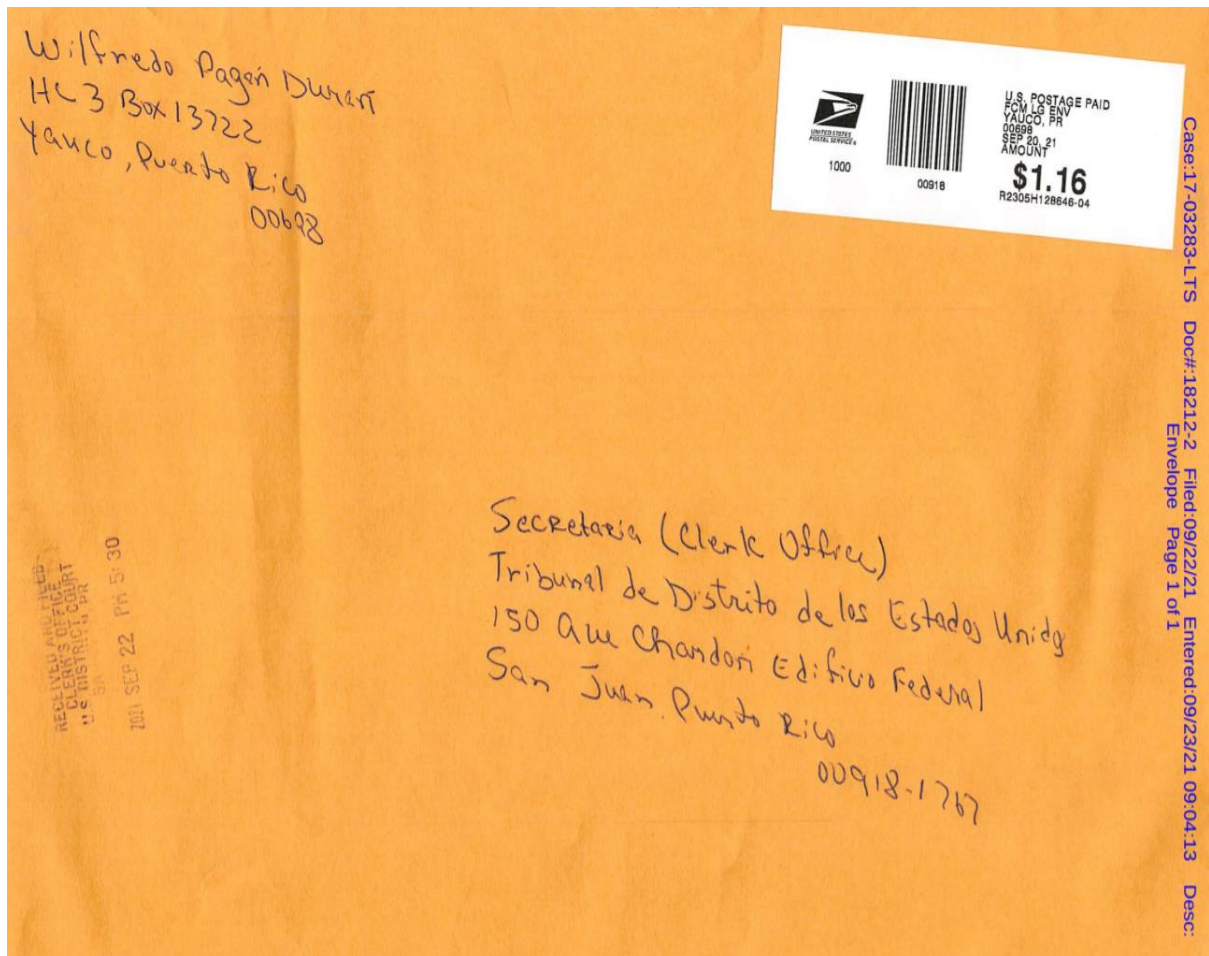 Wilfredo Pagán Durant
HC 3 Box 13722
Yauco, Puerto Rico
00698
UNITED STATES
POSTAL SERVICE
1000
00918
U.S. POSTAGE PAID
FCM LG ENV
YAUCO, PR
00698
SEP 20, 21
AMOUNT
$1.16
R2305H128646-04
Case:17-03283-LTS Doc#:18212-2 Filed:09/22/21 Entered:09/23/21 09:04:13 Desc:
Envelope Page 1 of 1
RECEIVED AND FILED
CLERK'S OFFICE
U.S. DISTRICT COURT
PR
2021 SEP 22 PM 5:30
Secretaria (Clerk Office)
Tribunal de Distrito de los Estados Unidos
150 Ave Chardon Edificio Federal
San Juan, Puerto Rico
00918-1767